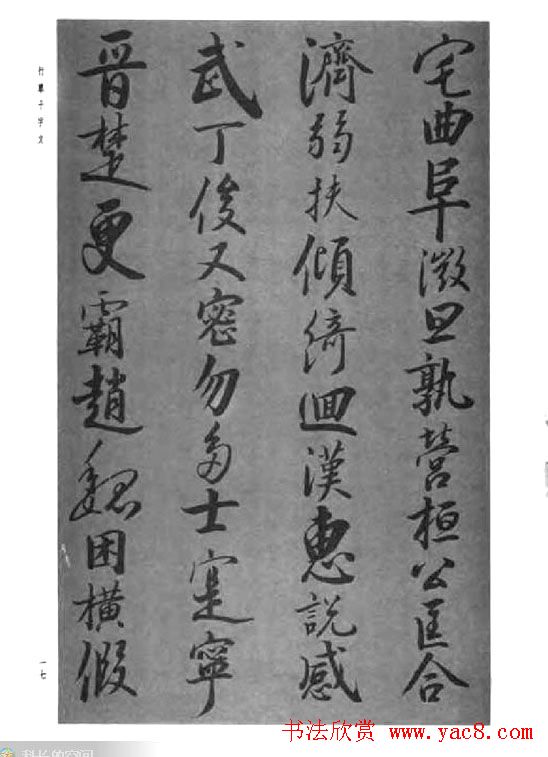 宅曲阜微旦孰營桓公匡合
濟弱扶傾綺迴漢惠說感
武丁俊乂密勿多士寔寧
晉楚更霸趙魏困橫假
行草千字文
一七
书法欣赏 www.yac8.com
科长的空间